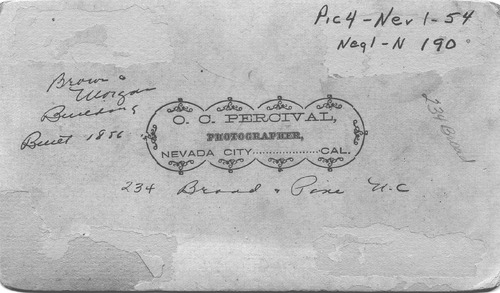 Pic4-Nev1-54
Negl-N 190
Brown &
Morgan
Building
Built 1856
O. C. PERCIVAL,
PHOTOGRAPHER,
NEVADA CITY....................CAL.
234 Broad
234 Broad & Pine N.C